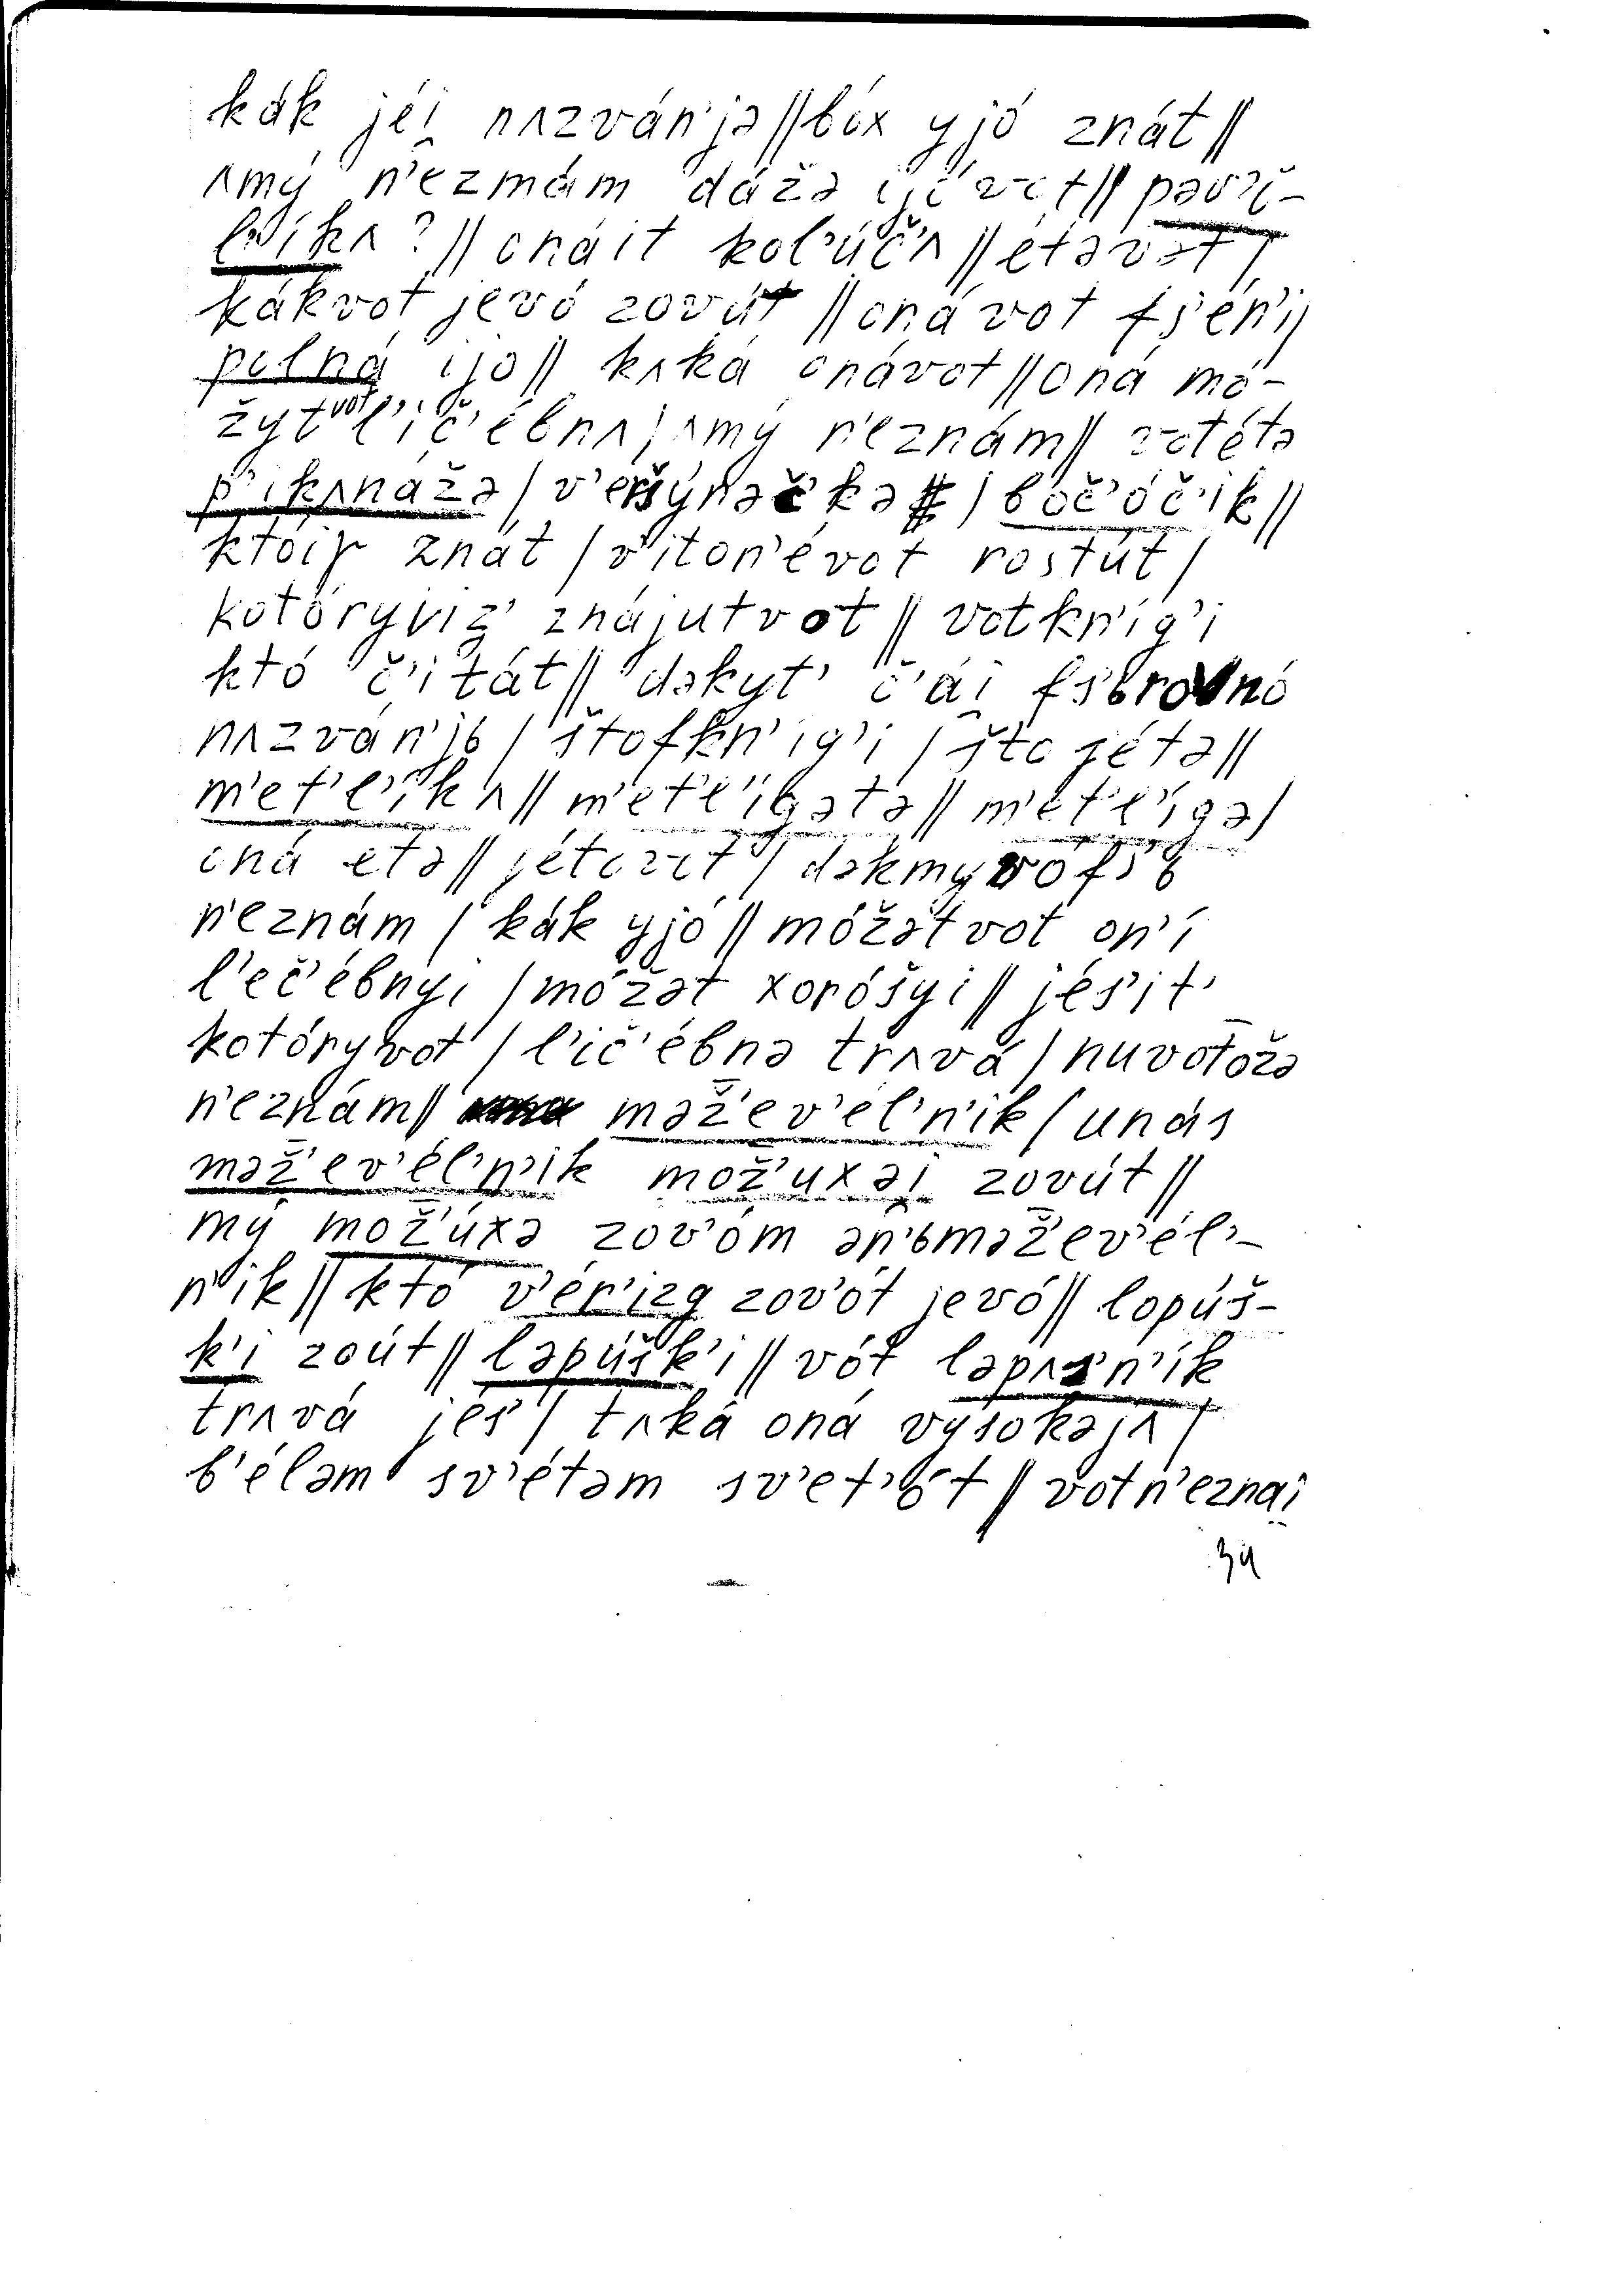 kák jéi̯ nʌzván'jə // bíx yjó znát //
ʌmý n'ezmám dážə ijóvot // pəv'i-
l'íkʌ? // onáit kol'úč'ʌ // étəvət /
kákvot jevó zovút // onávot fs'én'ij
polná ijo // kʌká onávot // oná mó-
žyt vot l'ič'ébnʌ j ʌmý n'eznám // votétə
p'ikʌnážə / v'eršýnəčkə / boč'óč'ik //
któip znát / v'iton'évot rostút /
kotóryjiz' znájutvot // votkn'íg'i
któ č'itát // dəkyt' č'ái̯ fs'ьrovnó
nʌzván'jь / štofkn'íg'i / što jétə //
m'et'l'íkʌ // m'et'l'ígətə // m'et'l'ígə /
oná etə // jétovot / dəkmyvófs'ь
n'eznám / kák yjó // móžətvot on'í
l'eč'ébnyi / móžət xoróšyi // jés'it'
kotóryvot / l'ič'ébnə trʌvá / nuvotožə
n'eznám // məž'ev'él'n'ik / unás
məž'ev'él'n'ik mož'uxəi̯ zovút //
mý mož'úxə zov'óm ən'ьməž'ev'él'-
n'ik // któ v'ér'izg zov'ót jevó // lopúš-
k'i zoút // ləpúšk'i // vót ləpʌsn'ík
trʌvá jés' / tʌká oná výsokəjʌ /
b'éləm sv'étəm sv'et'ót // votn'eznai̯
34